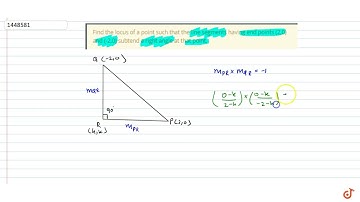 1448581
Find the locus of a point such that the line segments having end points (2,0)
and (-2,0) subtend a right angle at that point.
Q (-2,0)
m PR × m QR = -1
m QR
(0-k / 2-h) × (0-k / -2-h) =
90°
R
(h,k)
m PR
P(2,0)
doubtnut